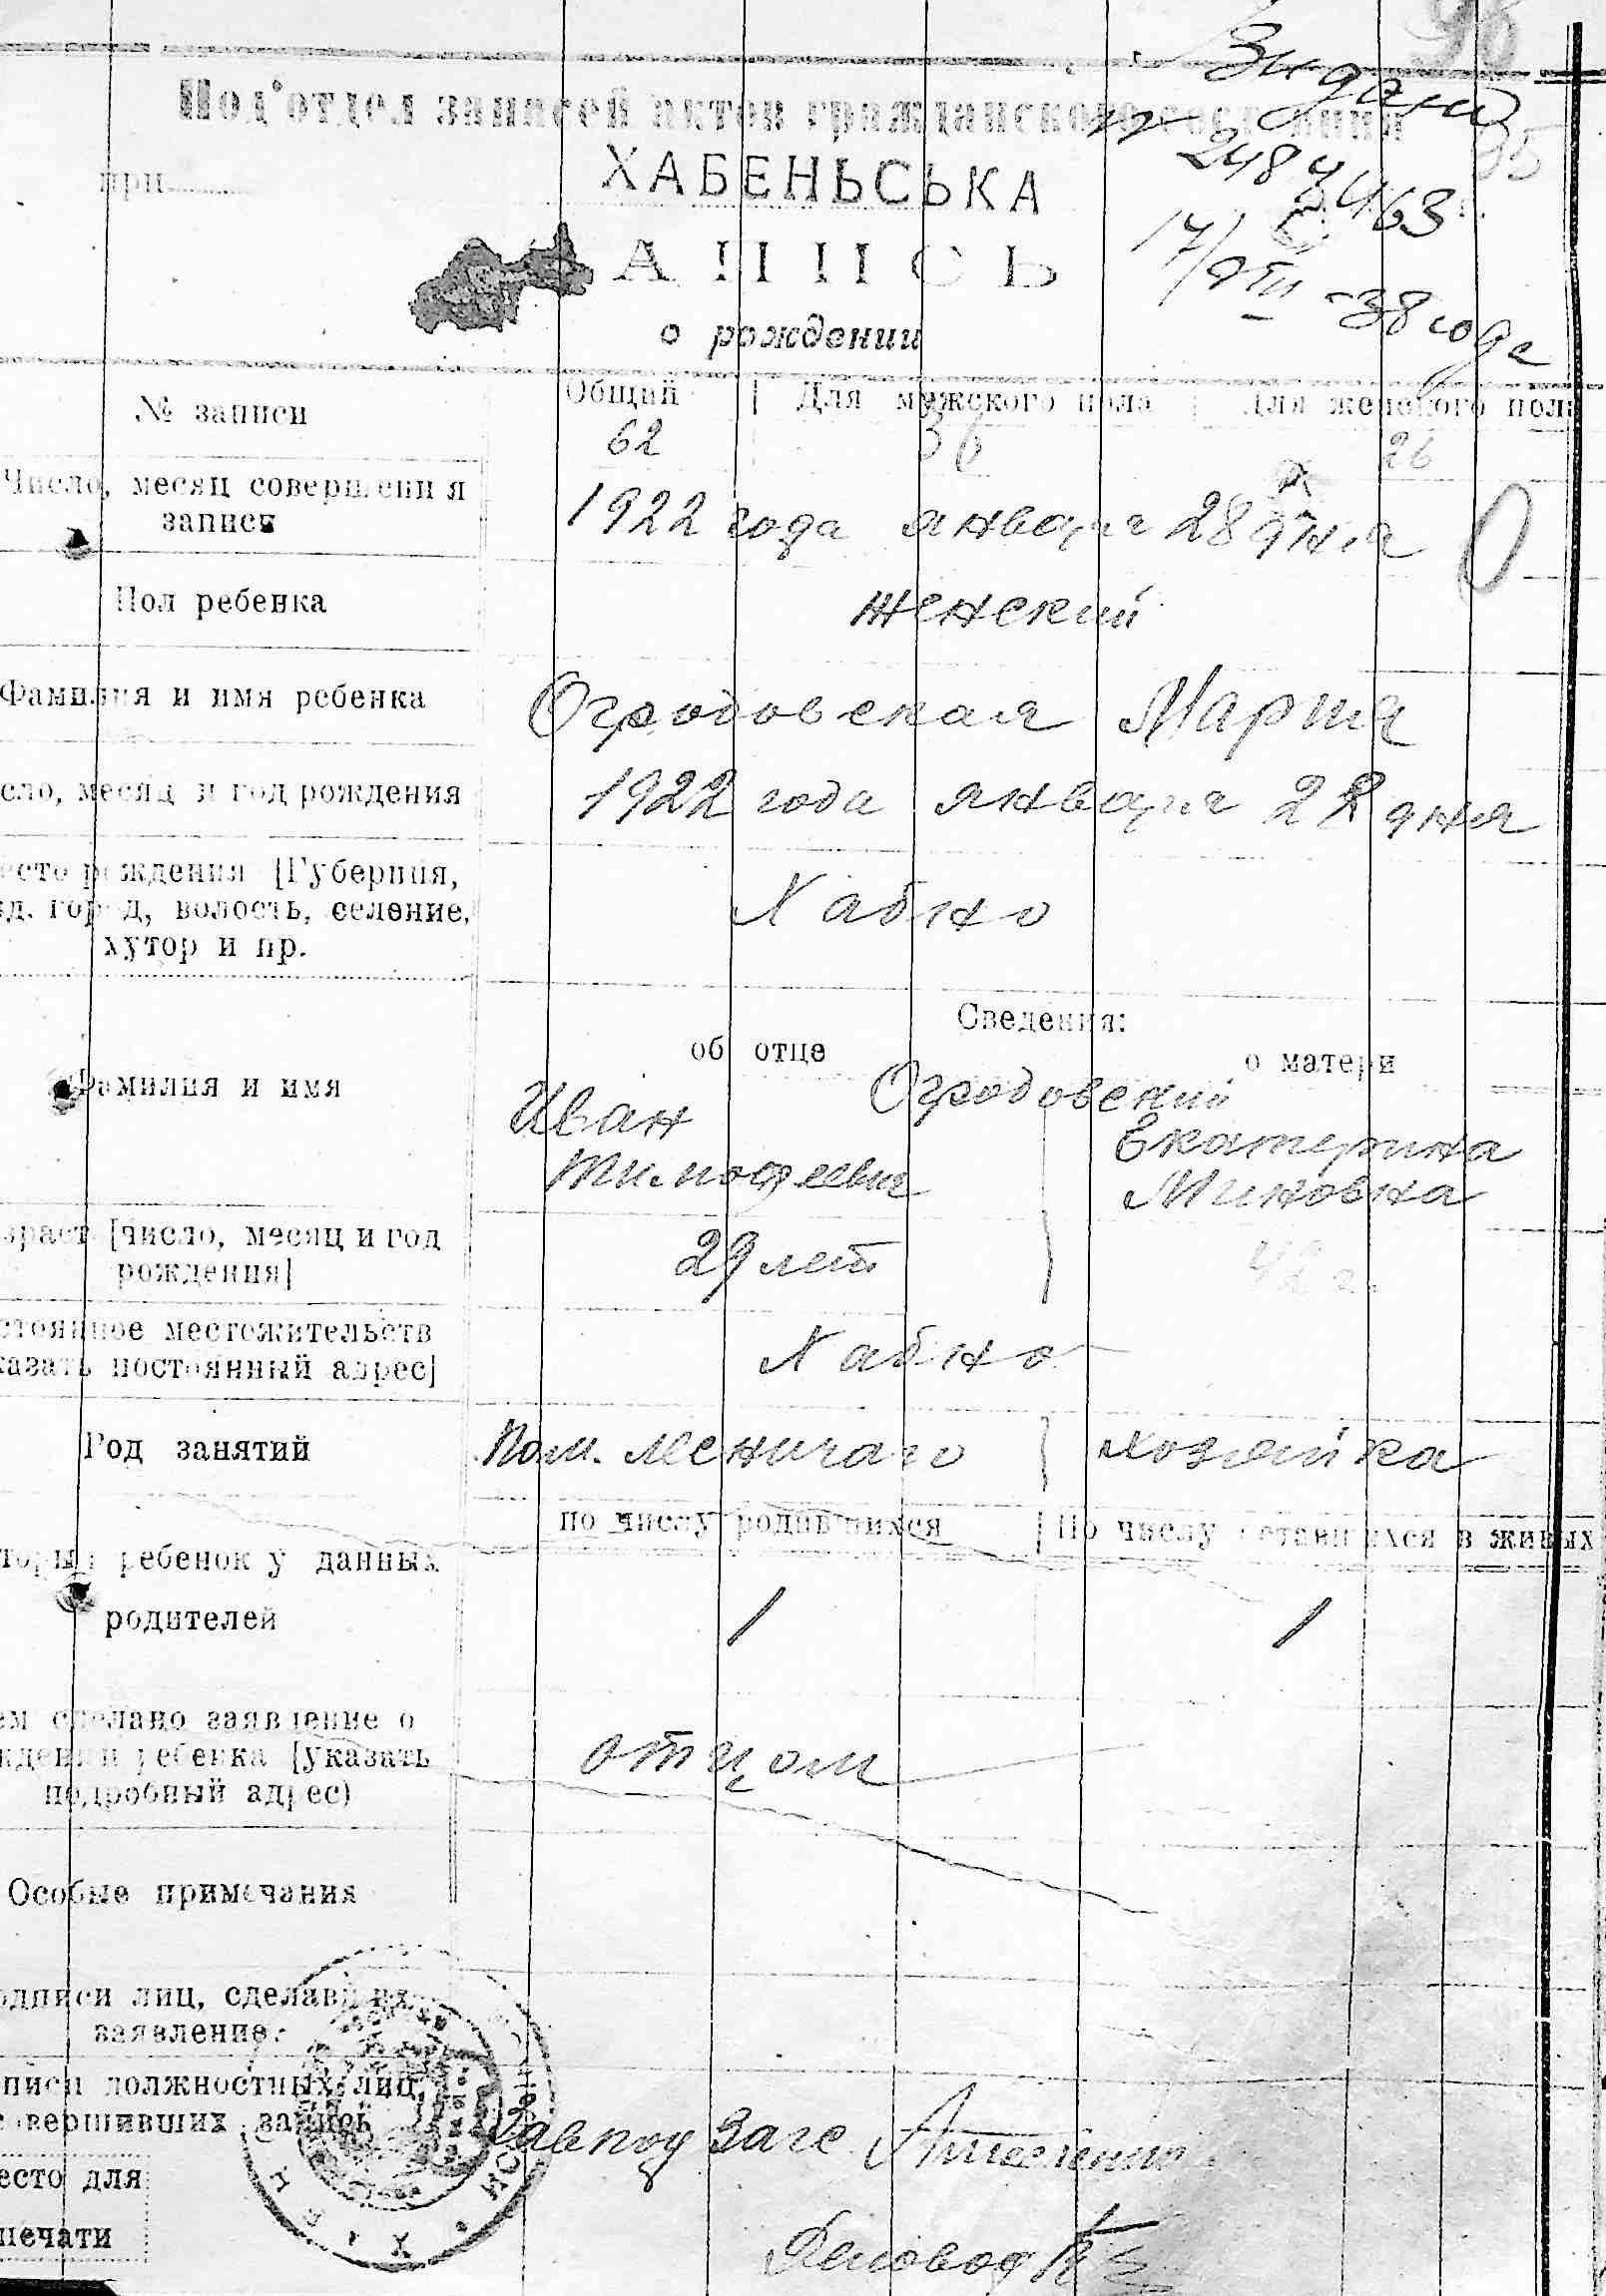 95
Под'отдел записей актов гражданского состояния
Видано
№ 248
17/VIII -38 года
при
ХАБЕНЬСЬКА
АПИСЬ
о рождении
№ записи
Общий | Для мужского пола | Для женского пола
62 36 26
Число, месяц совершения
записи
1922 года января 28 дня
Пол ребенка
женский
Фамилия и имя ребенка
Огродовская Мария
сло, месяц и год рождения
1922 года января 22 дня
есто рождения [Губерния,
зд. город, волость, селение,
хутор и пр.
Хабно
Сведения:
об отце о матери
Фамилия и имя
Огродовский
Иван Екатерина
Тимофеевич Миновна
зраст [число, месяц и год
рождения]
29 лет
стоянное местожительств
казать постоянный адрес]
Хабно
Род занятий
хозяйка
по числу родившихся | По числу оставшихся в живых
торый ребенок у данных
родителей
1 1
ем сделано заявление о
ждении ребенка [указать
подробный адрес)
отцом
Особые примечания
одписи лиц, сделавших
заявление
писи должностных лиц,
совершивших запись
Завпод Загс
есто для
печати
Деловод